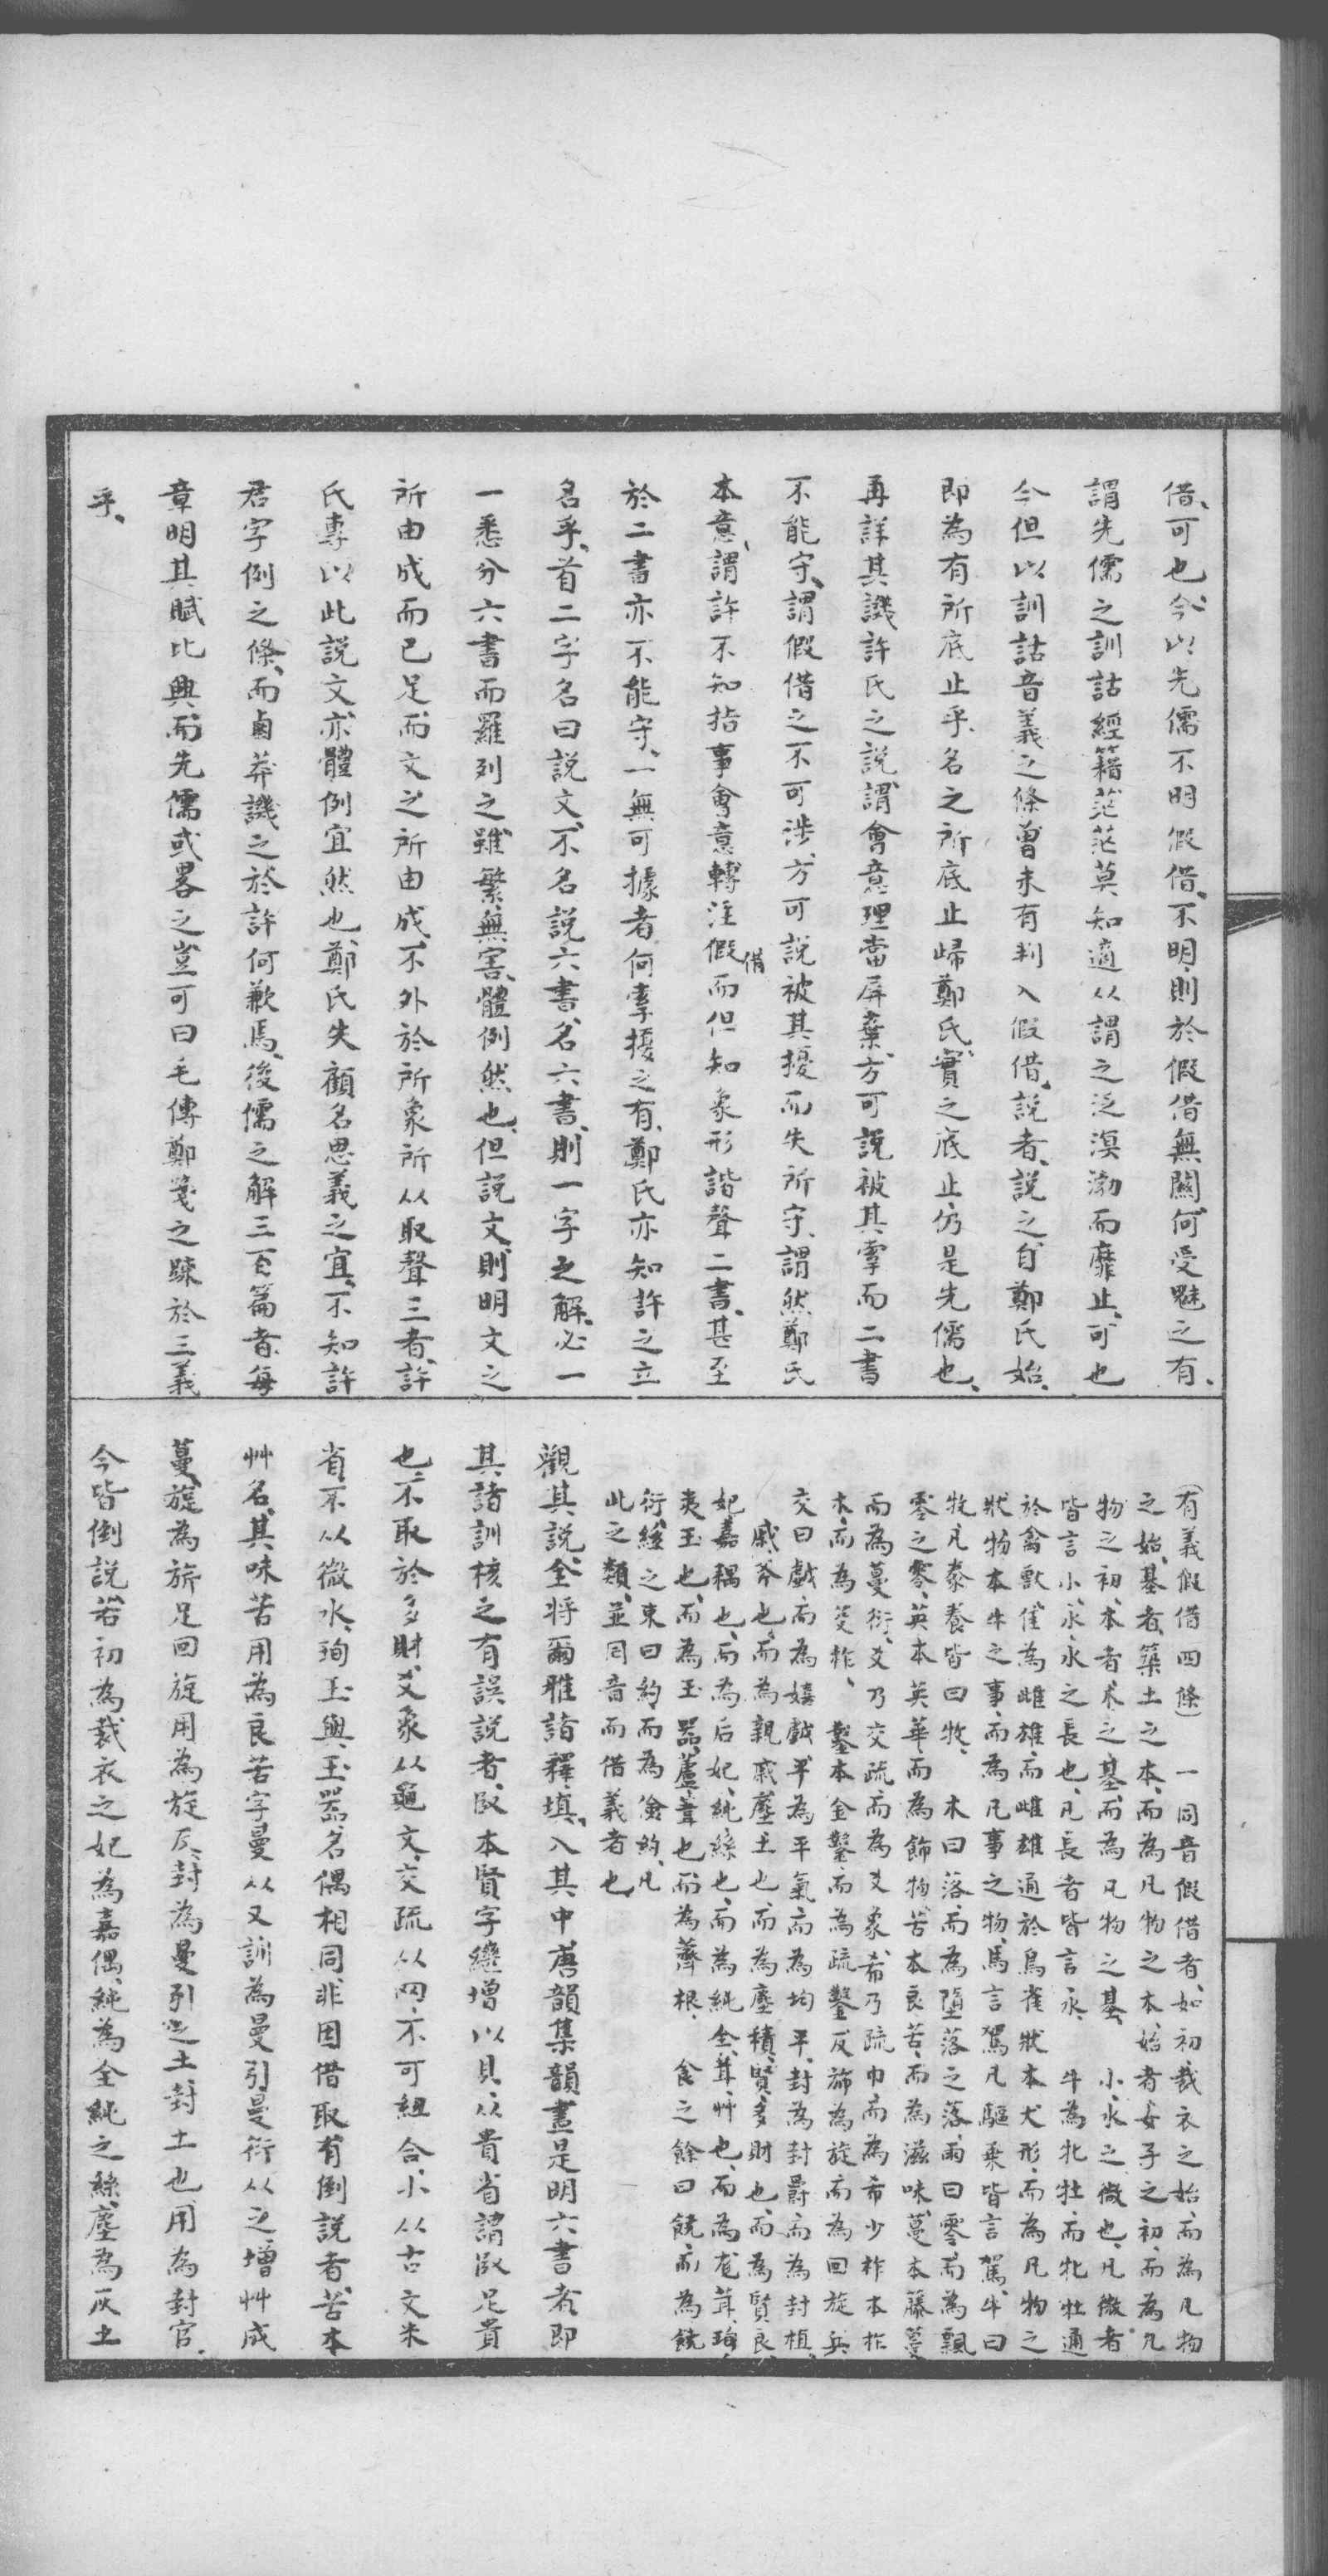 借、可也、今以先儒不明假借、不明、則於假借無關、何受魅之有、
謂先儒之訓詁經籍茫茫莫知適從謂之泛溟渤而靡止、可也
今但以訓詁音義之條曾未有判入假借、說者說之、自鄭氏始、
即為有所底止乎、名之所底止歸鄭氏、實之底止、仍是先儒也、
再詳其譏許氏之說、謂會意理當屏棄、方可說被其牽而二書
不能守、謂假借之不可涉、方可說被其擾而失所守、謂然鄭氏
本意、謂許不知指事會意轉注假借而但知象形諧聲二書、甚至
於二書亦不能守、一無可據者、何牽擾之有、鄭氏亦知許之立
名乎、首二字名曰說文、不名說六書、名六書、則一字之解、必一
一悉分六書而羅列之、雖繁無害、體例然也、但說文、則明文之
所由成而已足、而文之所由成、不外於所象所从取聲三者、許
氏專以此說文、亦體例宜然也、鄭氏失顧名思義之宜、不知許
君字例之條、而鹵莽譏之、於許何歉焉、後儒之解三百篇者、每
章明其賦比興、而先儒或畧之、豈可曰毛傳鄭箋之疎於三義
乎、
(有義假借四條)一同音假借者、如初裁衣之始、而為凡物
之始、基者、築土之本、而為凡物之本、始者女子之初、而為凡
物之初、本者木之基、而為凡物之基、小、水之微也、凡微者
皆言小、永、水之長也、凡長者皆言永、牛為牝牡、而牝牡通
於禽獸、隹為雌雄、而雌雄通於鳥雀、狀本犬形、而為凡物之
狀、物本牛之事、而為凡事之物、馬言駕、凡驅乘皆言駕、牛曰
牧、凡豢養皆曰牧、木曰落、而為墮落之落、雨曰零、而為飄
零之零、英本英華而為飾物、苦本良苦、而為滋味、蔓本藤蔓
而為蔓衍、爻乃交疏、而為爻象、希乃疏巾、而為希少、柞本柞
木、而為芟柞、鑿本金鑿、而為疏鑿、反旆為旋、而為回旋、兵
交曰戲、而為嬉戲、平為平氣、而為均平、封為封爵、而為封植、
戚斧也、而為親戚、塵土也、而為塵積、賢多財也、而為賢良、
妃嘉耦也、而為后妃、純絲也、而為純全、茸艸也、而為尨茸、珣
夷玉也、而為玉器、蘆葦也、而為薺根、食之餘曰饒、而為饒
衍、絲之束曰約、而為儉約、凡
此之類、並同音而借義者也
觀其說、全將爾雅詣釋、填入其中、唐韻集韻盡是明六書者、即
其諸訓核之、有誤說者、臤本賢字、纔增以貝、从貴省、謂臤足貴
也、不取於多財、爻象从龜文、交疏从网、不可紐合、小从古文米
省、不从微水、珣玉與玉器、名偶相同、非因借取、有倒說者、苦本
艸名、其味苦用為良苦字、曼从又訓為曼引、曼衍从之、增艸成
蔓、旋為旂足回旋、用為旋反、封為曼引之土、封土也、用為封官、
今皆倒說、若初為裁衣之、妃為嘉偶、純為全純之絲、塵為灰土